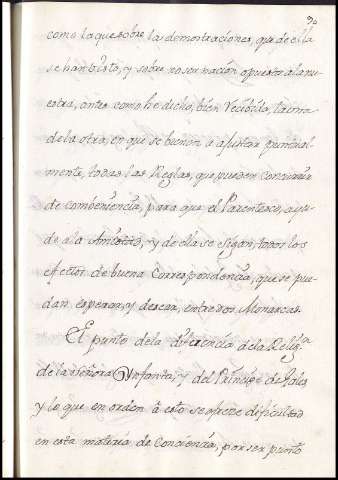 90
como la que sobre las demostraciones, que de ella
se han visto, y sobre no ser nacion opuesta a la nu-
estra, antes como he dicho, bien Vecibida, la una
de la otra, en que se buenen a ajustar puntual
mente, todas las Reglas, que pueden concurrir
de combeniencia, para que el Parentesco, ayu-
de a la Amistad, y de ella se sigan, todos los
efectos de buena Correspondencia, que se pue-
dan esperar, y desear, entre dos Monarcas.
El punto de la diferencia de la Relig.n
de la Señora Ynfanta, y del Principe de Gales
y lo que en orden à esto se ofreze dificultad
en esta materia, de Conciencia, por ser punto